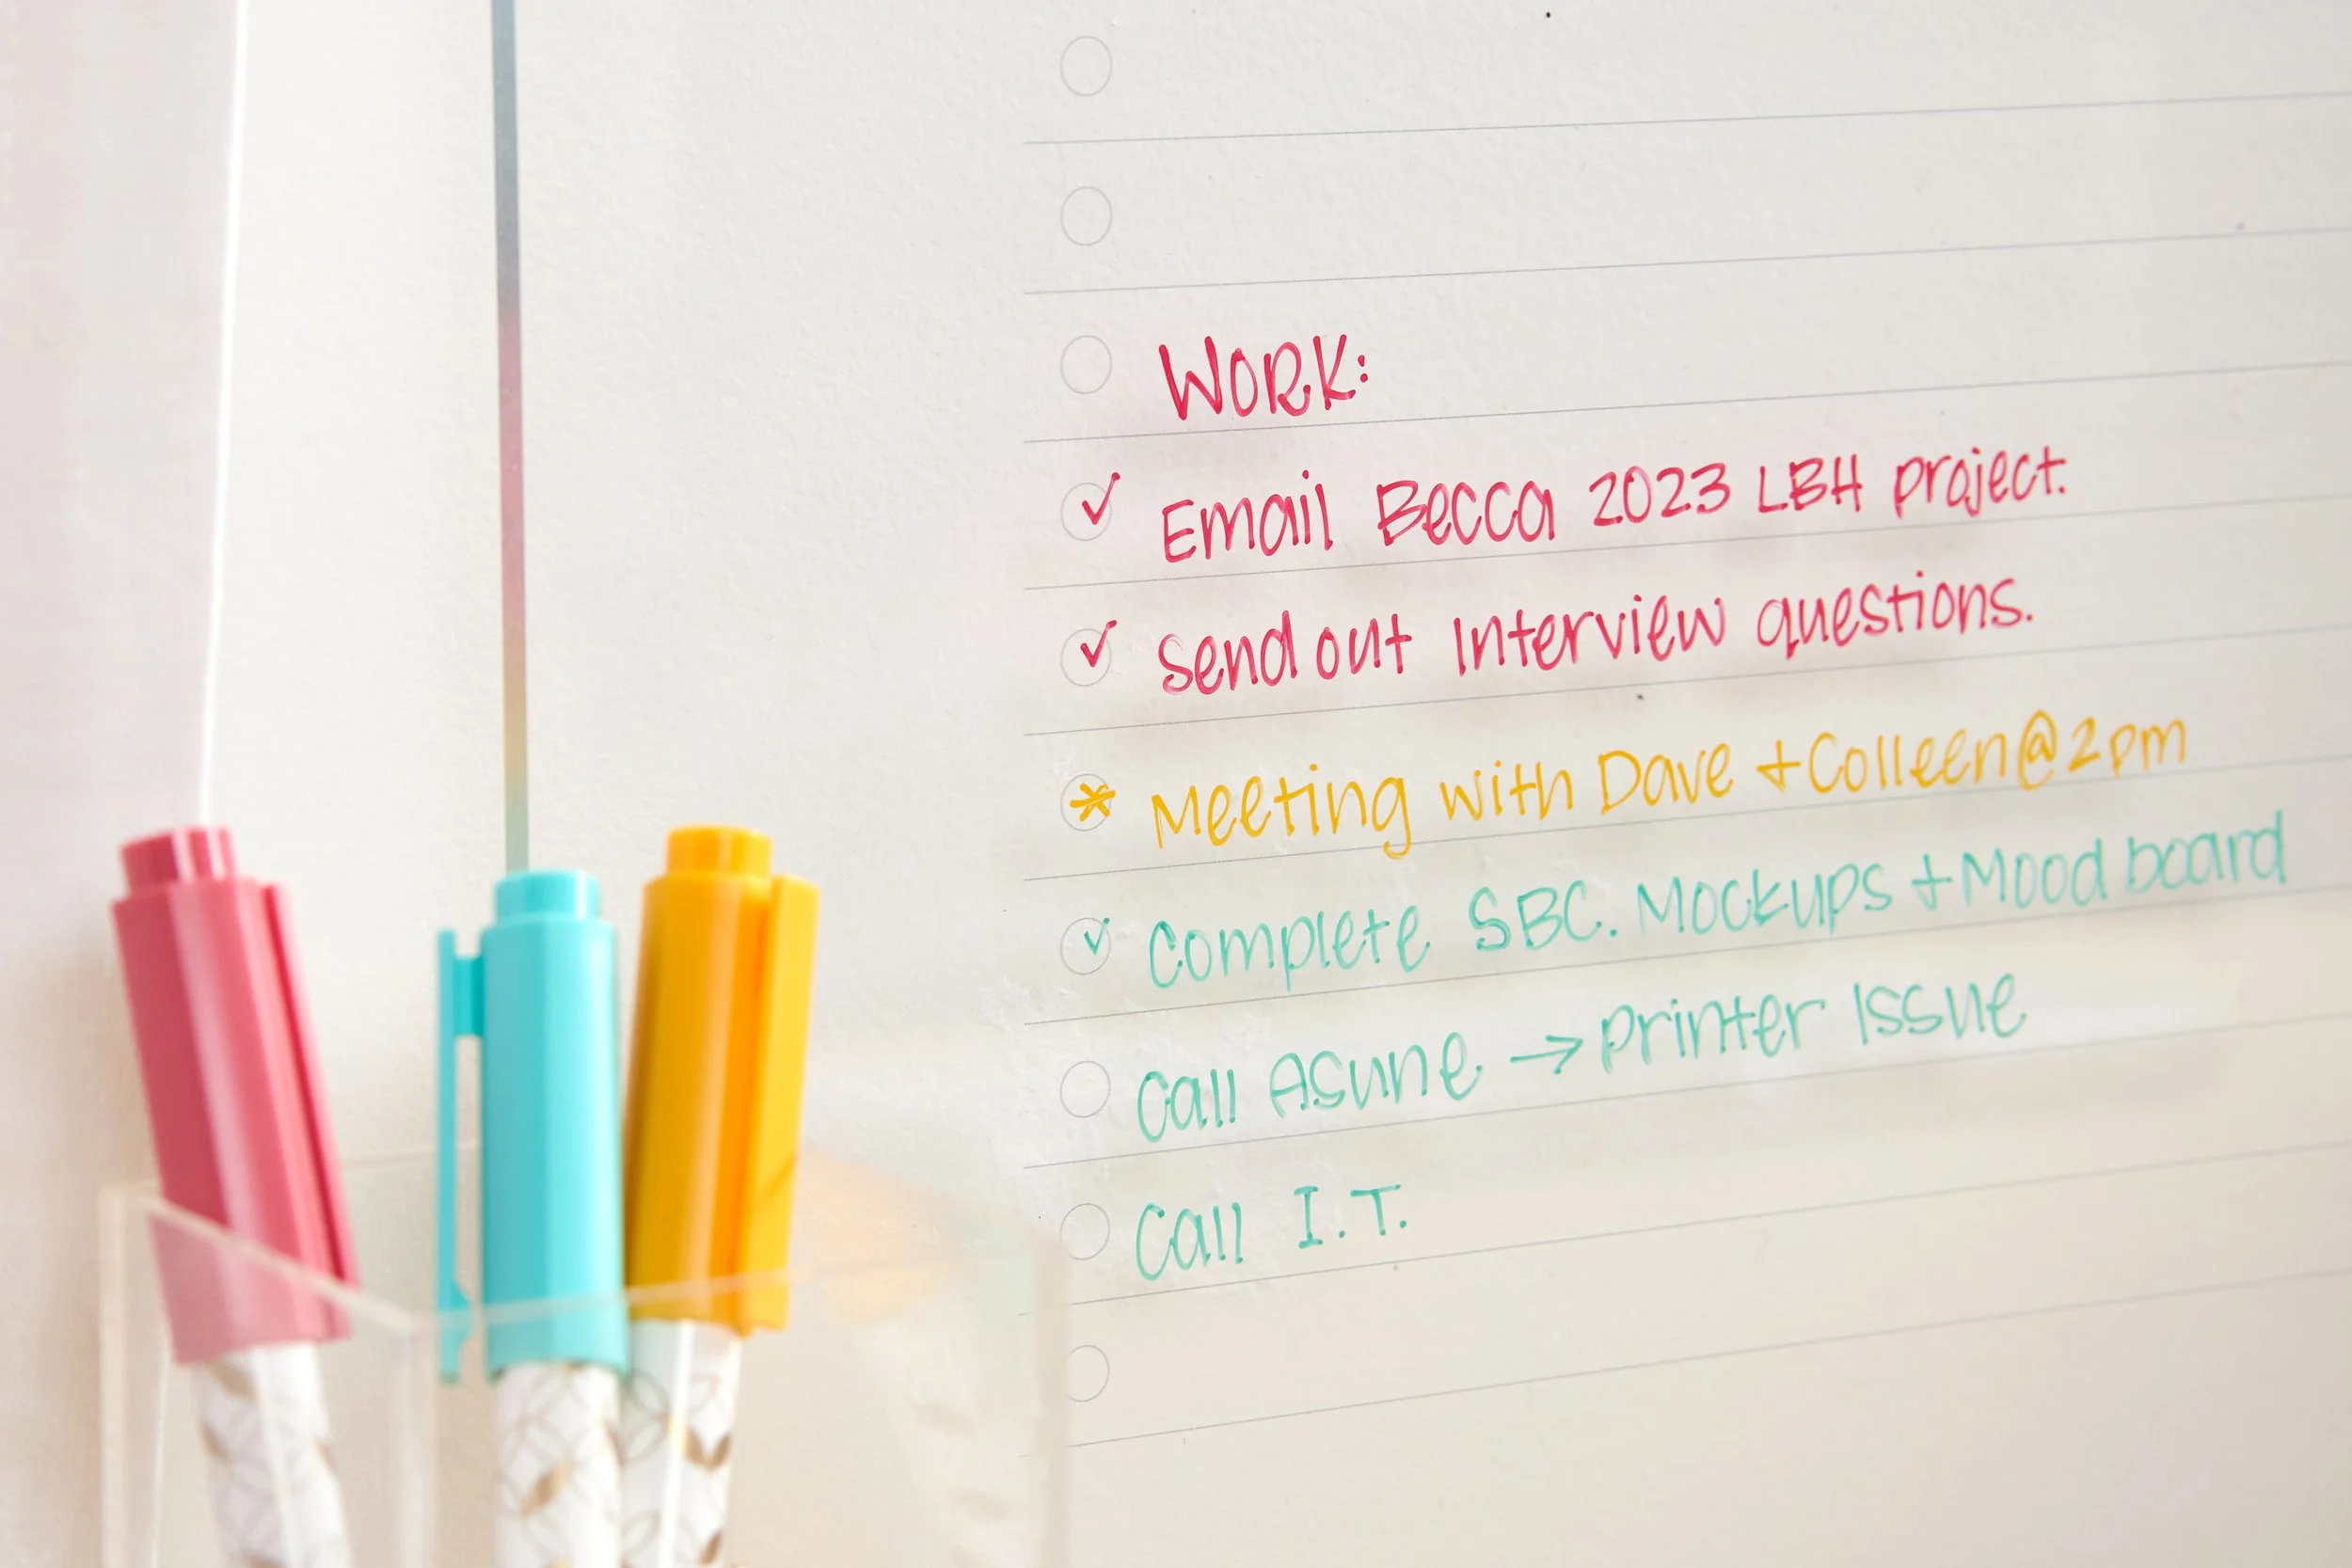 WORK:
✓ Email Becca 2023 LBH project.
✓ send out Interview questions.
* Meeting with Dave + Colleen @ 2pm
✓ Complete SBC. Mockups + Mood board
Call Asune → Printer Issue
Call I.T.